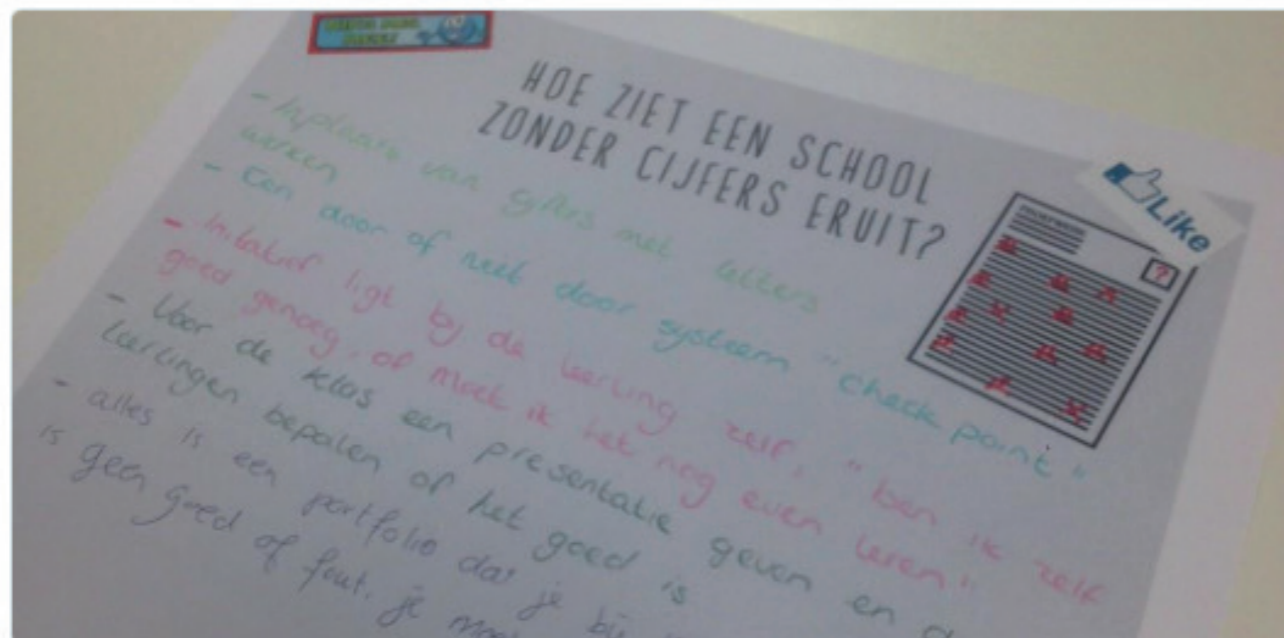 HOE ZIET EEN SCHOOL
ZONDER CIJFERS ERUIT?
Like
?
- Inplaats van cijfers met letters
werken
- Een door of niet door systeem "check point"
- Initatief ligt bij de leerling zelf, "ben ik zelf
goed genoeg, of moet ik het nog even leren"
- Voor de klas een presentatie geven en d
leerlingen bepalen of het goed is
- alles is een portfolio dat je bij
is geen goed of fout. je moet